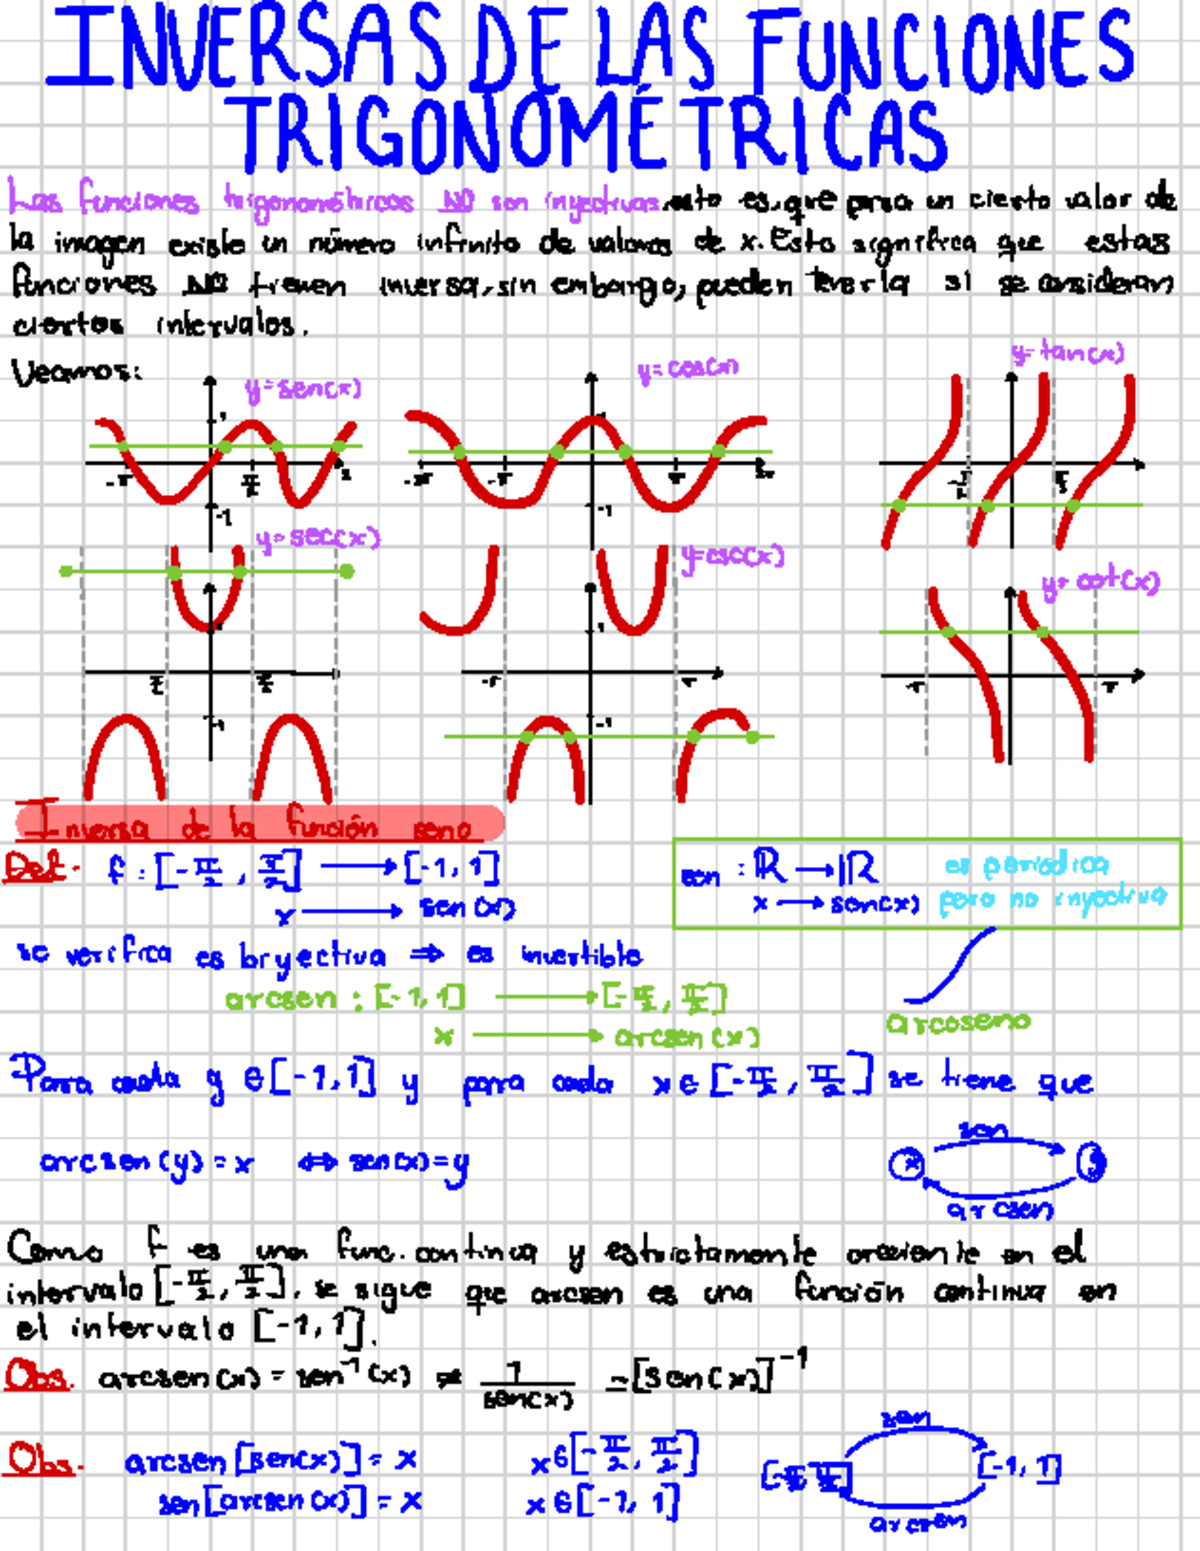 INVERSAS DE LAS FUNCIONES
TRIGONOMÉTRICAS
Las funciones trigonométricas NO son inyectivas, esto es, que para un cierto valor de
la imagen existe un número infinito de valores de x. Esto significa que estas
funciones NO tienen inversa, sin embargo, pueden tenerla si se consideran
ciertos intervalos.
Veamos:
y=sen(x)
y=cos(x)
y=tan(x)
y=sec(x)
y=csc(x)
y=cot(x)
Inversa de la función seno
Def. f: [-π/2, π/2] → [-1, 1]
x → sen(x)
sen : ℝ → ℝ es periódica
x → sen(x) pero no inyectiva
se verifica es biyectiva ⇒ es invertible
arcsen : [-1, 1] → [-π/2, π/2]
x → arcsen(x)
arcoseno
Para cada y ∈ [-1, 1] y para cada x ∈ [-π/2, π/2] se tiene que
arcsen(y) = x ⇔ sen(x) = y
sen
x y
arcsen
Como f es una func. continua y estrictamente creciente en el
intervalo [-π/2, π/2], se sigue que arcsen es una función continua en
el intervalo [-1, 1].
Obs. arcsen(x) = sen⁻¹(x) ≠ 1/sen(x) = [sen(x)]⁻¹
Obs. arcsen[sen(x)] = x x ∈ [-π/2, π/2]
sen[arcsen(x)] = x x ∈ [-1, 1]
sen
[-π/2, π/2] [-1, 1]
arcsen